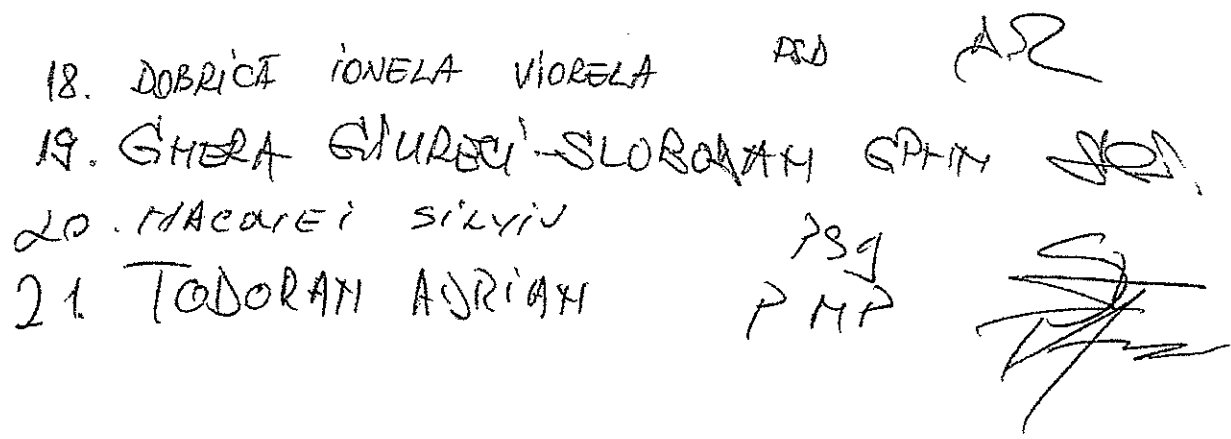 18. DOBRICĂ IONELA VIORELA PSD
19. GHERA GIURECI-SLOBODAN GPMN
20. MACOVEI SILVIU PSD
21. TODORAN ADRIAN PMP